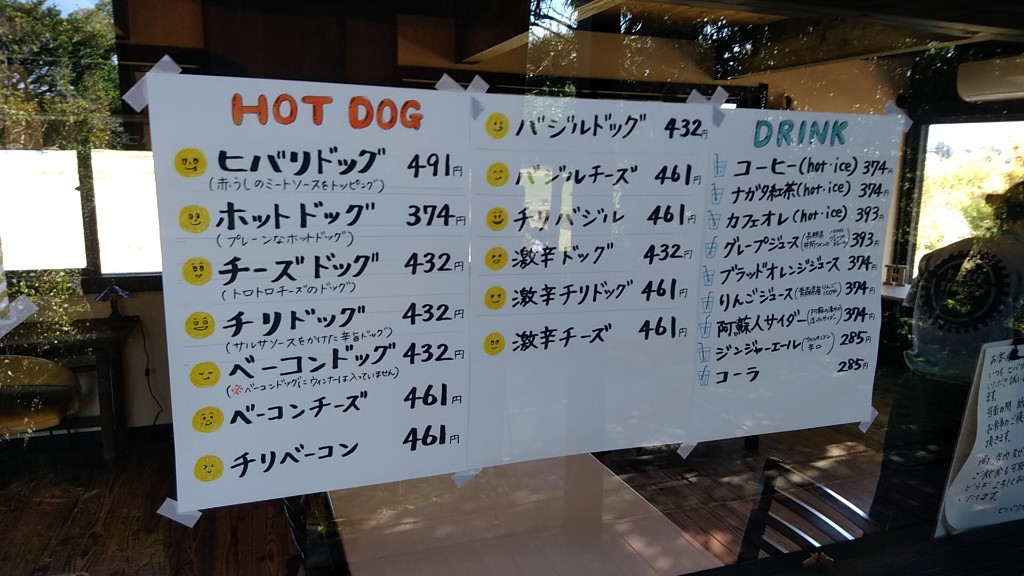 HOT DOG
ヒバリドッグ 491円
(赤うしのミートソースをトッピング)
ホットドッグ 374円
(プレーンなホットドッグ)
チーズドッグ 432円
(トロトロチーズのドッグ)
チリドッグ 432円
(サルサソースをかけた辛旨ドッグ)
ベーコンドッグ 432円
(※ベーコンドッグにウィンナーは入っていません)
ベーコンチーズ 461円
チリベーコン 461円
バジルドッグ 432円
バジルチーズ 461円
チリバジル 461円
激辛ドッグ 432円
激辛チリドッグ 461円
激辛チーズ 461円
DRINK
コーヒー(hot・ice) 374円
ナガタ紅茶(hot・ice) 374円
カフェオレ(hot・ice) 393円
グレープジュース 393円
ブラッドオレンジジュース 374円
りんごジュース(青森県産りんご100%) 374円
阿蘇人サイダー 374円
ジンジャーエール(ウィルキンソン辛口) 285円
コーラ 285円